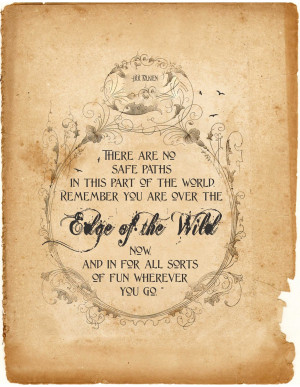 J.R.R. TOLKIEN
THERE ARE NO
SAFE PATHS
IN THIS PART OF THE WORLD.
REMEMBER YOU ARE OVER THE
Edge of the Wild
NOW,
AND IN FOR ALL SORTS
OF FUN WHEREVER
YOU GO. "